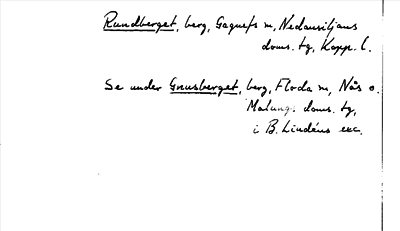 Rundberget, berg, Gagnefs sn, Nedansiljans
doms. tg, Kopp. l.
Se under Gnusberget, berg, Floda sn, Nås o.
Malung. doms. tg,
i B. Lindéns exc.